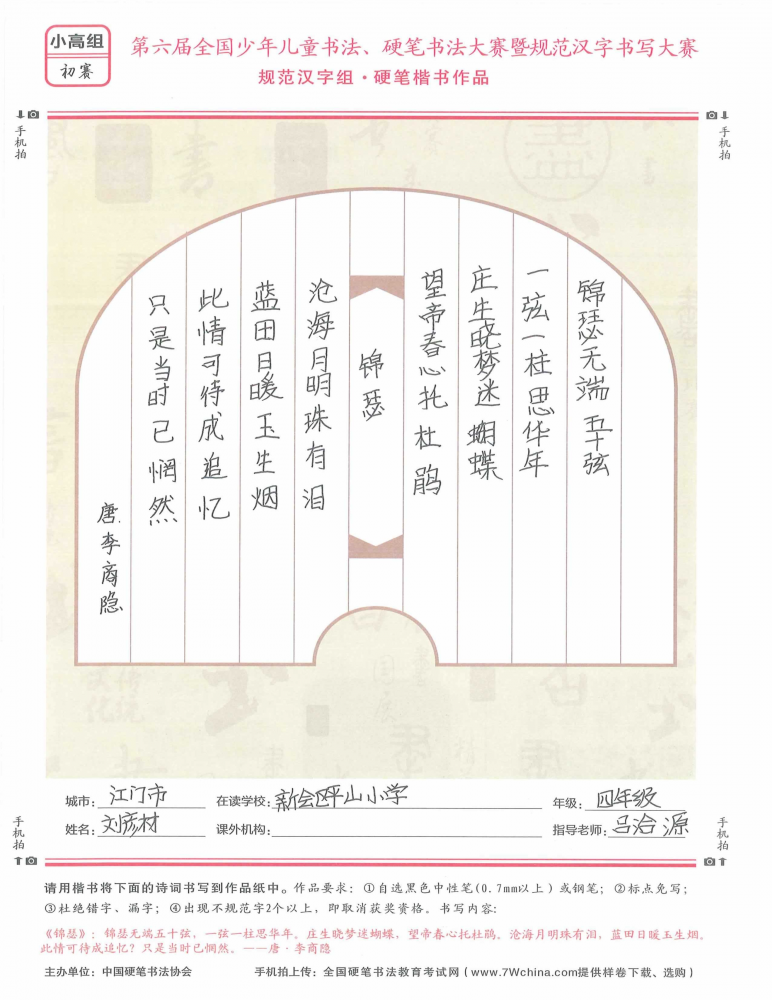 小高组
初赛
第六届全国少年儿童书法、硬笔书法大赛暨规范汉字书写大赛
规范汉字组·硬笔楷书作品
手机拍
手机拍
锦瑟无端五十弦
一弦一柱思华年
庄生晓梦迷蝴蝶
望帝春心托杜鹃
锦瑟
沧海月明珠有泪
蓝田日暖玉生烟
此情可待成追忆
只是当时已惘然
唐.李商隐
城市：江门市 在读学校：新会区平山小学 年级：四年级
姓名：刘彦材 课外机构： 指导老师：吕治源
手机拍
手机拍
请用楷书将下面的诗词书写到作品纸中。作品要求：①自选黑色中性笔(0.7mm以上）或钢笔；②标点免写；
③杜绝错字、漏字；④出现不规范字2个以上，即取消获奖资格。书写内容：
《锦瑟》：锦瑟无端五十弦，一弦一柱思华年。庄生晓梦迷蝴蝶，望帝春心托杜鹃。沧海月明珠有泪，蓝田日暖玉生烟。
此情可待成追忆？只是当时已惘然。——唐·李商隐
主办单位：中国硬笔书法协会 手机拍上传：全国硬笔书法教育考试网（www.7Wchina.com提供样卷下载、选购）